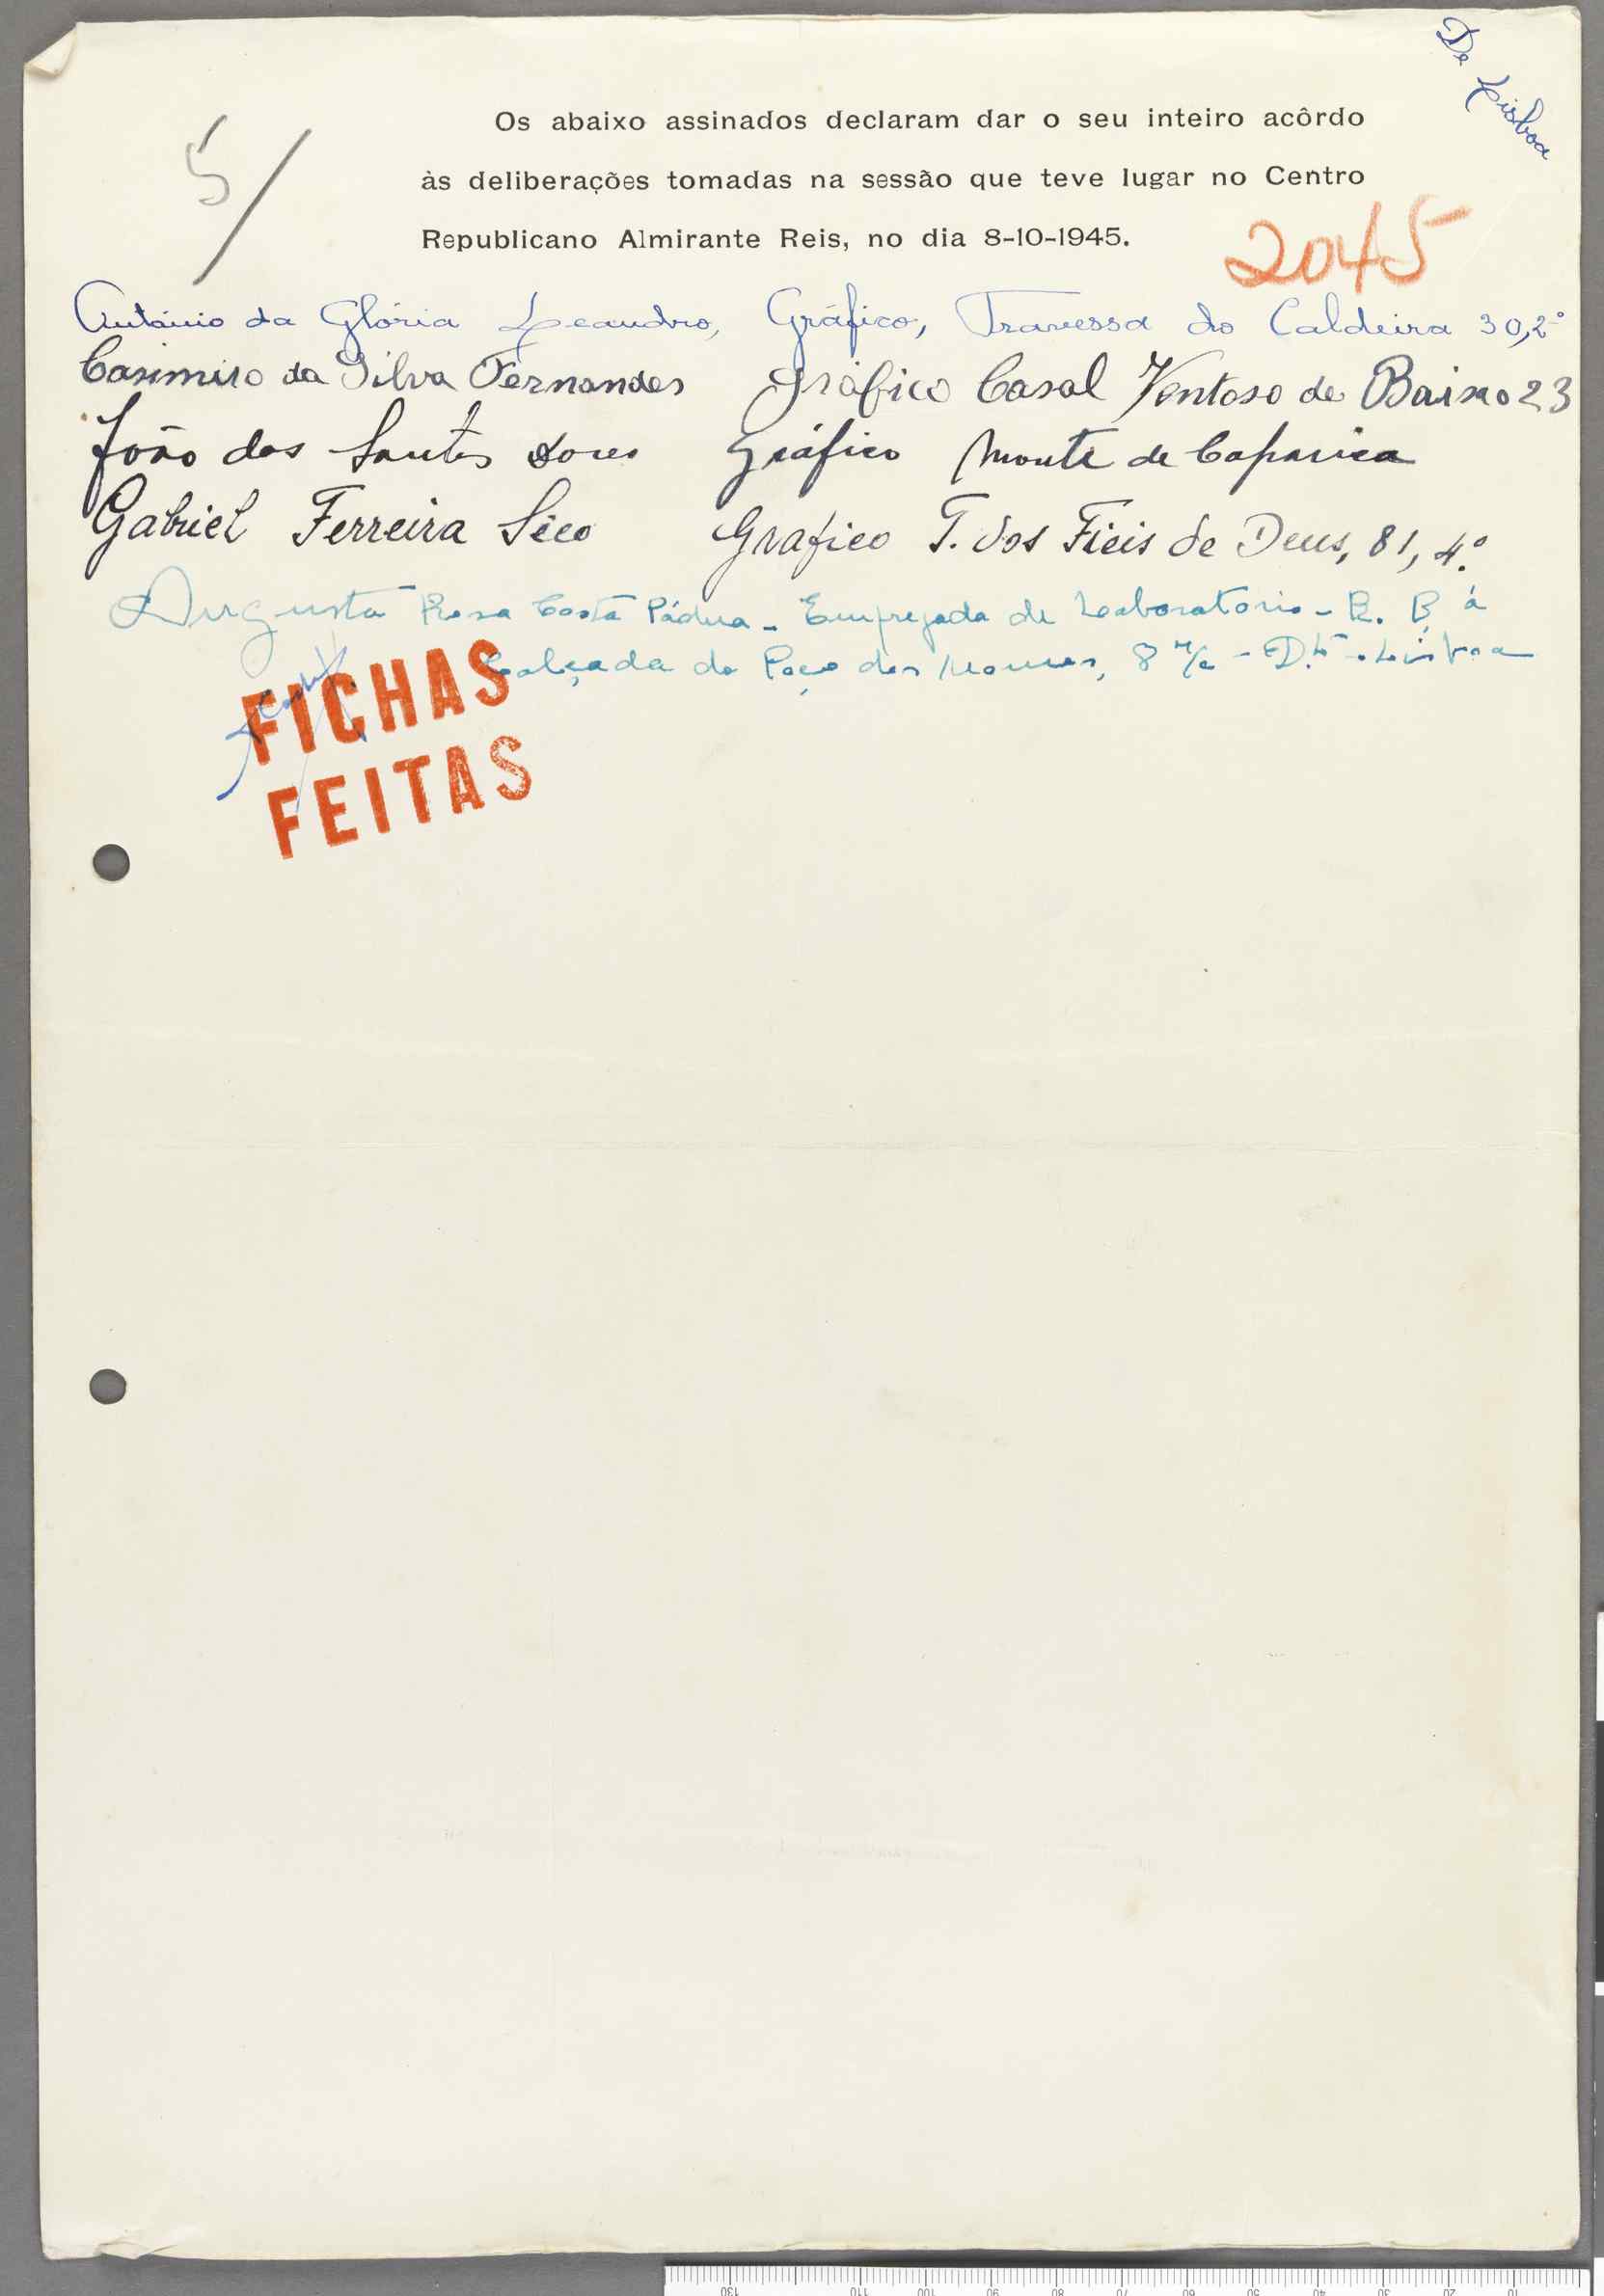 De Lisboa
5/
Os abaixo assinados declaram dar o seu inteiro acôrdo
às deliberações tomadas na sessão que teve lugar no Centro
Republicano Almirante Reis, no dia 8-10-1945.
2045
António da Glória Leandro, Gráfico, Travessa do Caldeira 30,2º
Casimiro da Silva Fernandes gráfico Casal Ventoso de Baixo 23
João dos Santos gráfico Monte de Caparica
Gabriel Ferreira Sêco Grafico T. dos Fieis de Deus, 81, 4.º
Augusta Rosa Costa Pádua - Empregada de Laboratorio - R. B. á
Calçada do Poço dos Mouros, 8 r/c - D.to - Lisboa
FICHAS
FEITAS